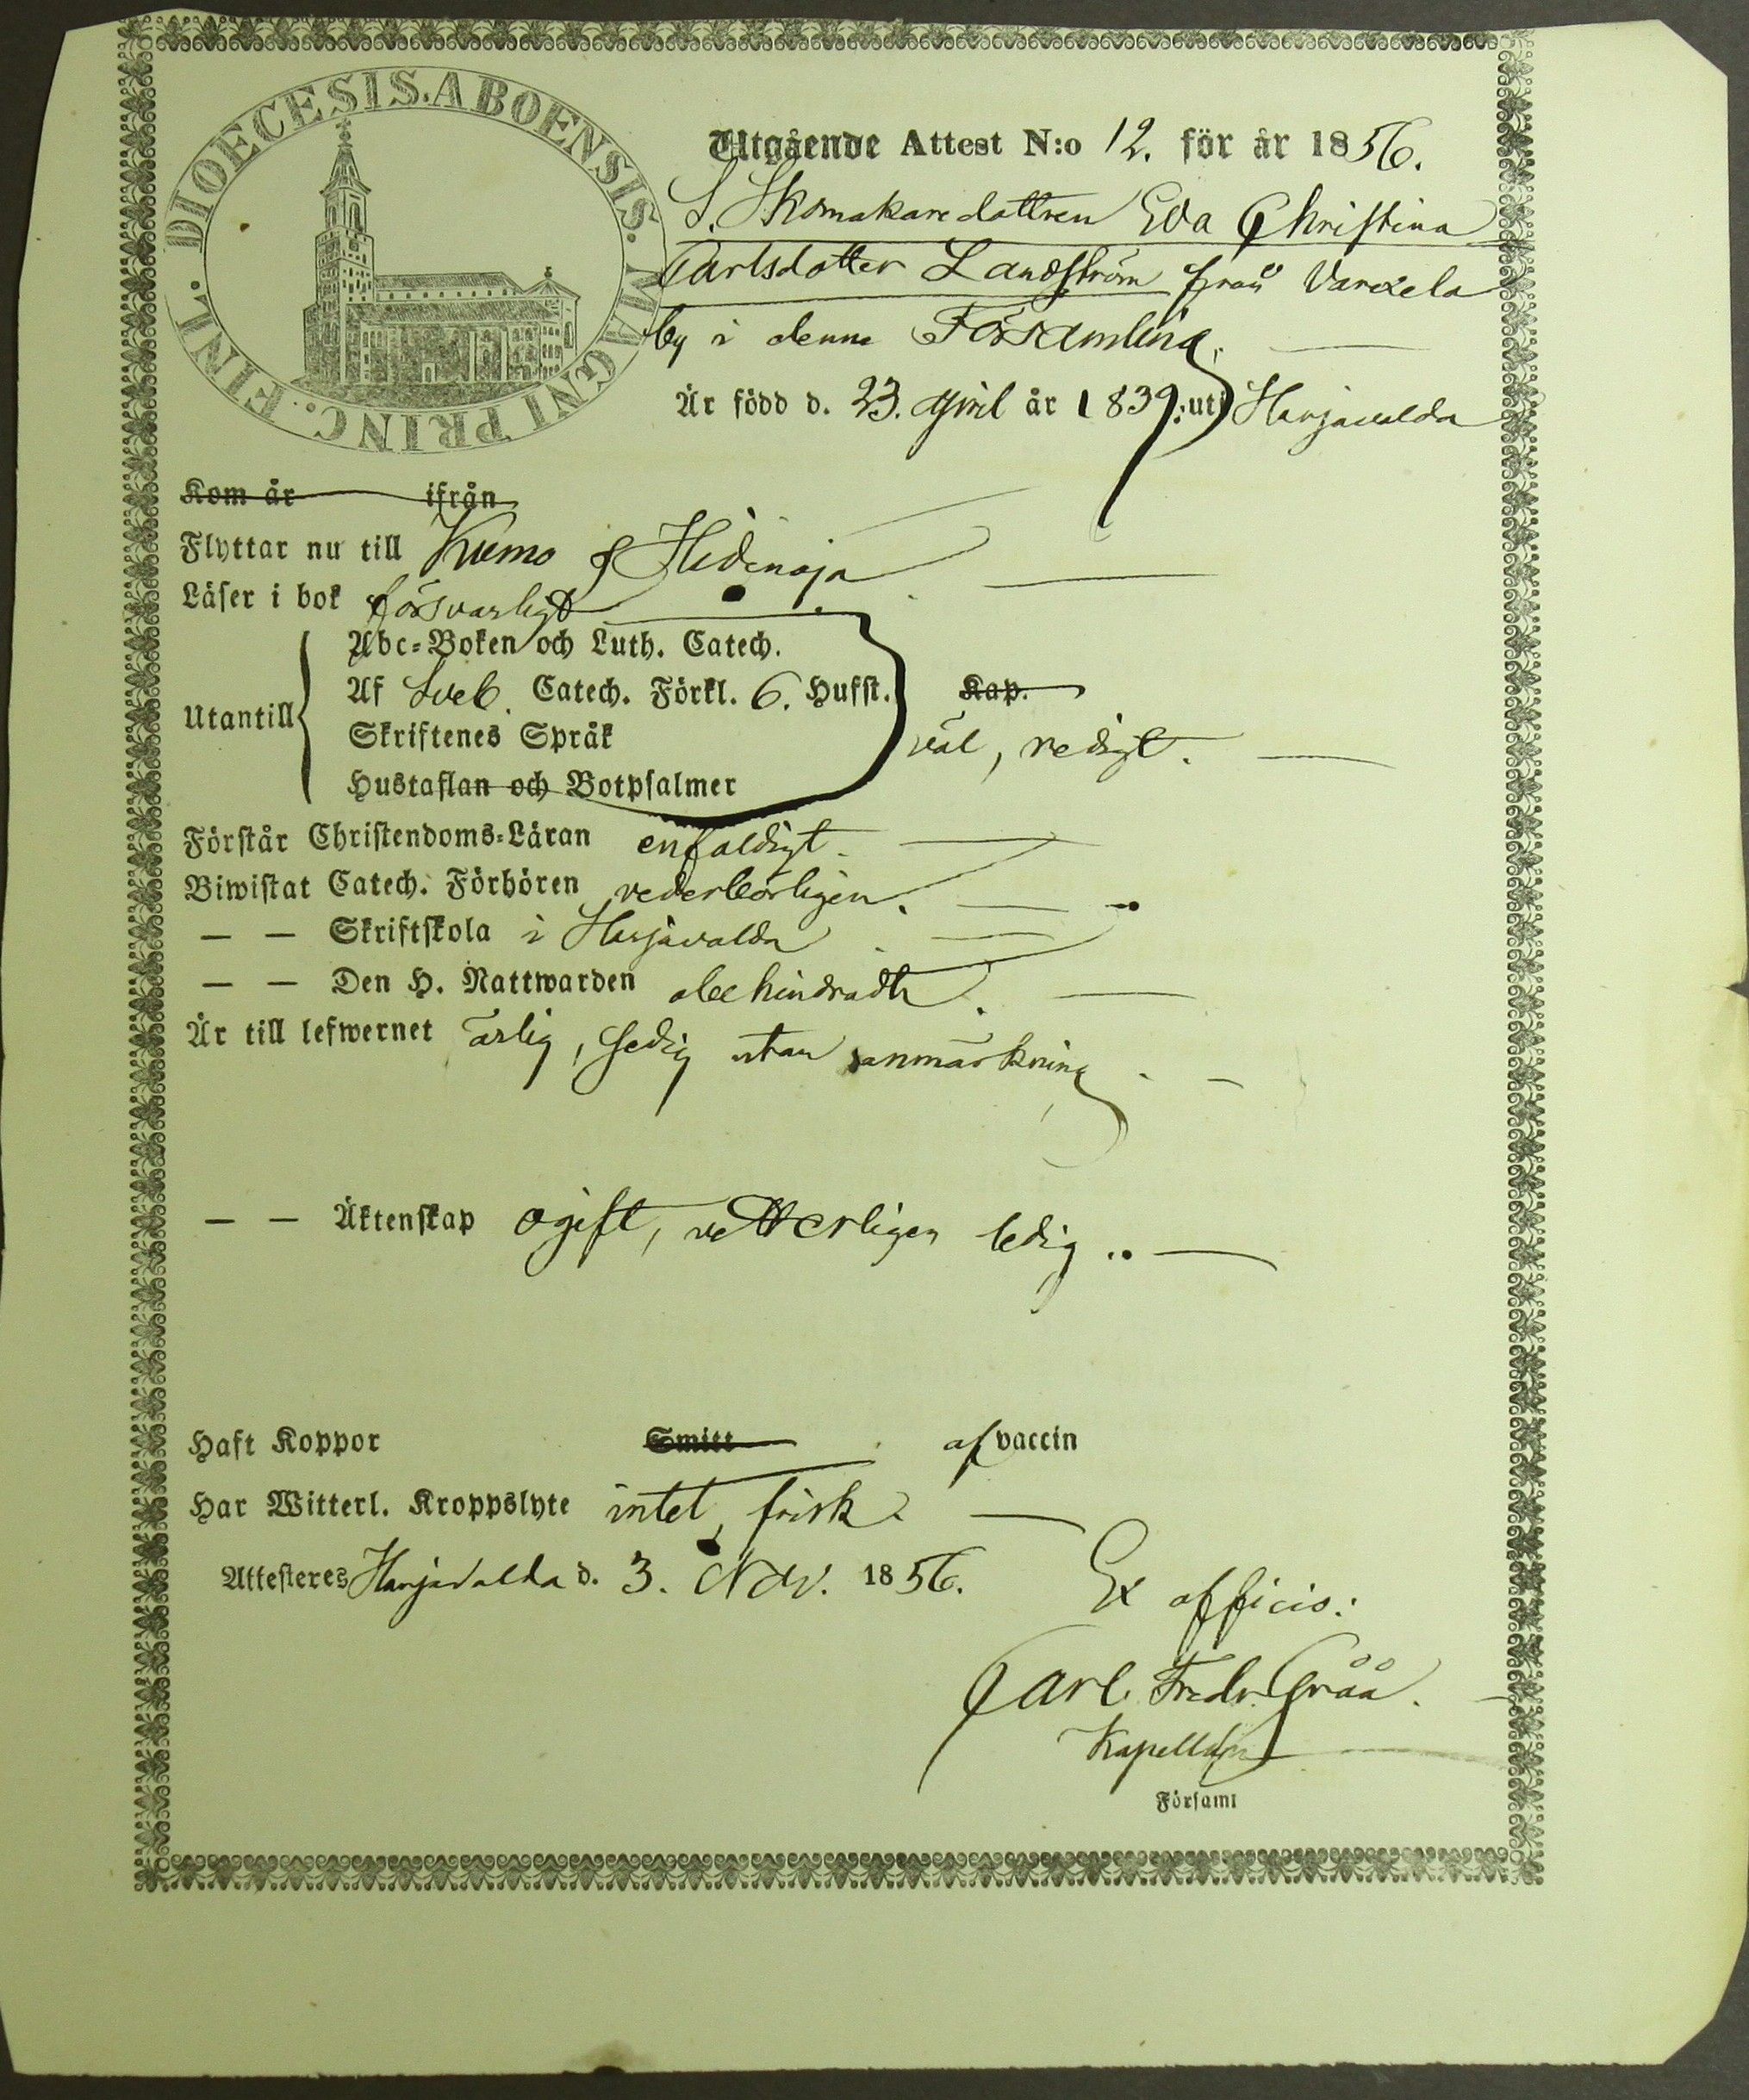 DIOECESIS. ABOENSIS. MAGNI PRINC. FINL.
Utgående Attest N:o 12. för år 1856.
S. Skomakaredottren Eva Christina
Carlsdotter Landström från
by i denna Församling.
Är född d. 23. April år 1839. uti Harjavalda
Kom år ifrån
Flyttar nu till Kumo
Läser i bok försvarligt
Utantill
Abc-Boken och Luth. Catech.
Af Sveb. Catech. Förkl. 6. Hufst. Kap.
Skriftenes Språk väl, redigt.
Hustaflan och Botpsalmer
Förstår Christendoms-Läran enfaldigt.
Biwistat Catech. Förhören vederbörligen.
— — Skriftskola i Harjavalda
— — Den H. Nattwarden obehindradt.
Är till lefwernet ärlig, sedig utan anmärkning.
— — Äktenskap ogift, vetterligen ledig..
Haft Koppor Smitt af vaccin
Har Witterl. Kroppslyte intet, frisk
Attesteres Harjavalda d. 3. Nov. 1856.
Ex officio:
Carl Fredr. Gråå.
Kapellan
Församl